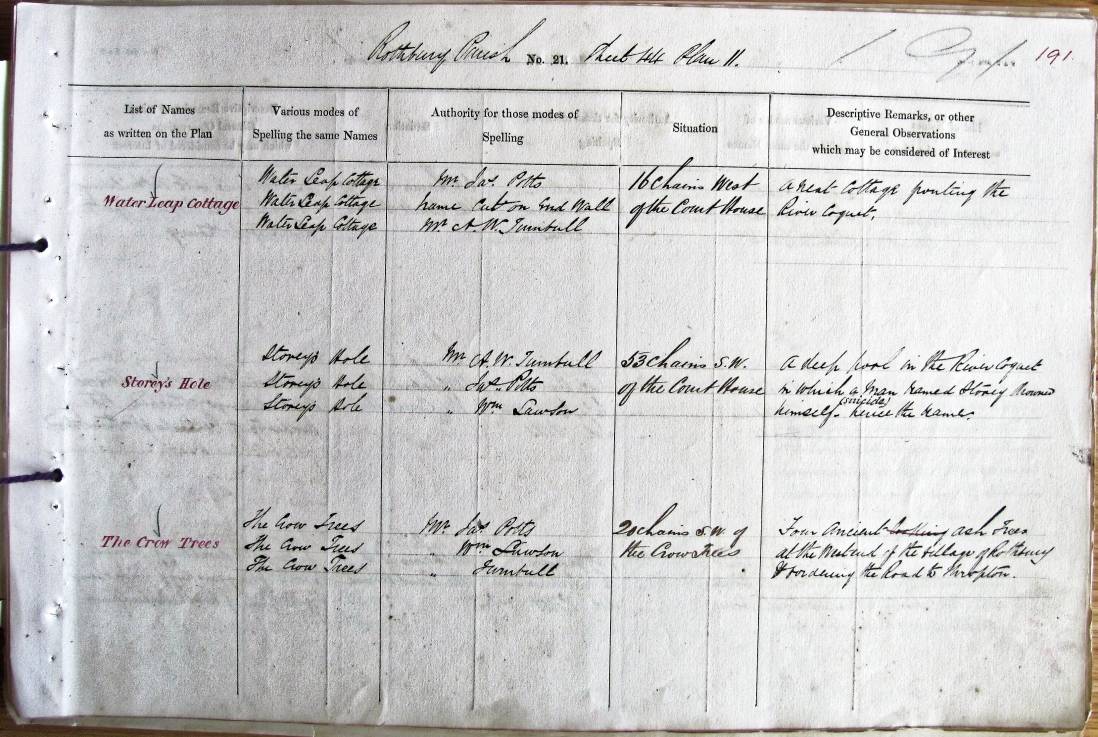 Rothbury Parish No. 21. Sheet 44 Plan 11.
191
List of Names
as written on the Plan
Various modes of
Spelling the same Names
Authority for those modes of
Spelling
Situation
Descriptive Remarks, or other
General Observations
which may be considered of Interest
Water Leap Cottage
Water Leap Cottage
Water Leap Cottage
Water Leap Cottage
Mr. Jas. Potts
Name Cut on End Wall
Mr. A. W. Turnbull
16 Chains West
of the Court House
A neat Cottage fronting the
River Coquet.
Storey's Hole
Storey's Hole
Storey's Hole
Storey's Hole
Mr. A. W. Turnbull
" Jas. Potts
" Wm Lawson
53 Chains S.W.
of the Court House
A deep pool in the River Coquet
in which a Man named Storey drowned
himself (suicide) hence the name.
The Crow Trees
The Crow Trees
The Crow Trees
The Crow Trees
Mr Jas Potts
" Wm Lawson
" Turnbull
20 chains S.W. of
the Crow Trees
Four ancient ash Trees
at the West end of the village of Rothbury
& bordering the Road to Thropton.